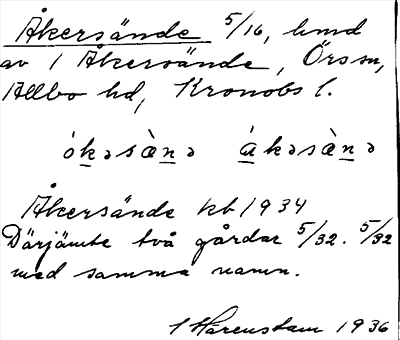 Åkersände 5/16, hmd
av 1 Åkersände, Örs sn,
Allbo hd, Kronobs l.
ókəsǟnə ákəsànə
Åkersände kb 1934
Därjämte två gårdar 5/32. 5/32
med samma namn.
Härenstam 1936